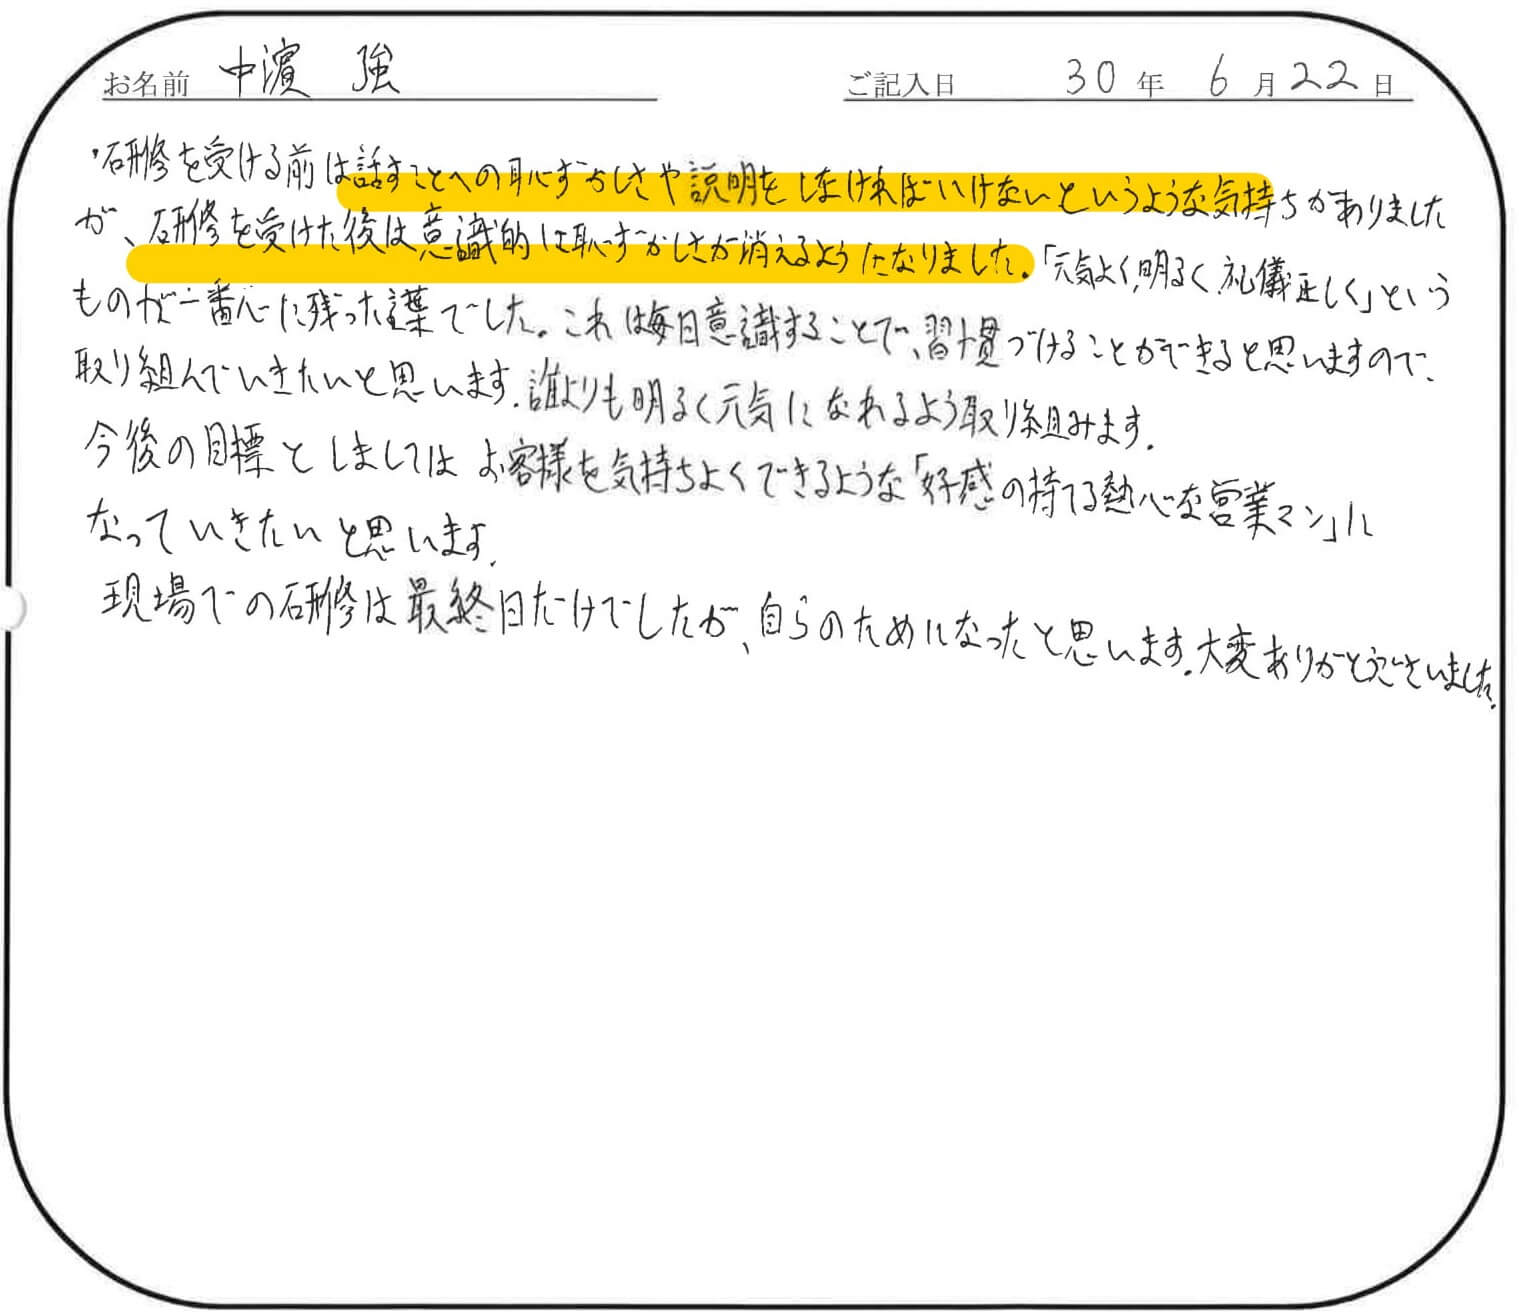 お名前 中濱 強 ご記入日 30年 6月22日
・研修を受ける前は話すことへの恥ずかしさや説明をしなければいけないというような気持ちがありました
が、研修を受けた後は意識的は恥ずかしさが消えるようになりました。「元気よく、明るく、礼儀正しく」という
ものが一番心に残った言葉でした。これは毎日意識することで、習慣づけることができると思いますので、
取り組んでいきたいと思います。誰よりも明るく元気になれるよう取り組みます。
今後の目標としましてはお客様を気持ちよくできるような「好感の持てる熱心な営業マン」に
なっていきたいと思います。
現場での研修は最終日だけでしたが、自らのためになったと思います。大変ありがとうございました。